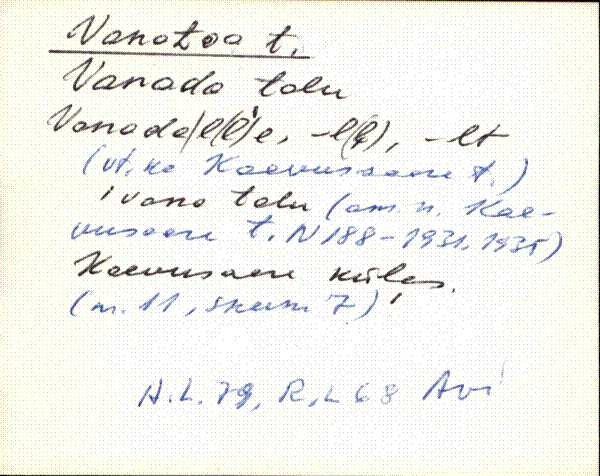 Vanatoa t.
Vanada talu
Vanada|l(l)e, -l(l), -lt
(vt. ka Kaevussaare t.)
'vana talu (am. n. Kae-
vusaare t. N188-1931, 1935)
Kaevusaare küļas.
(m. 11, skeem 7)
H.L. 79, R.L 68 Avi